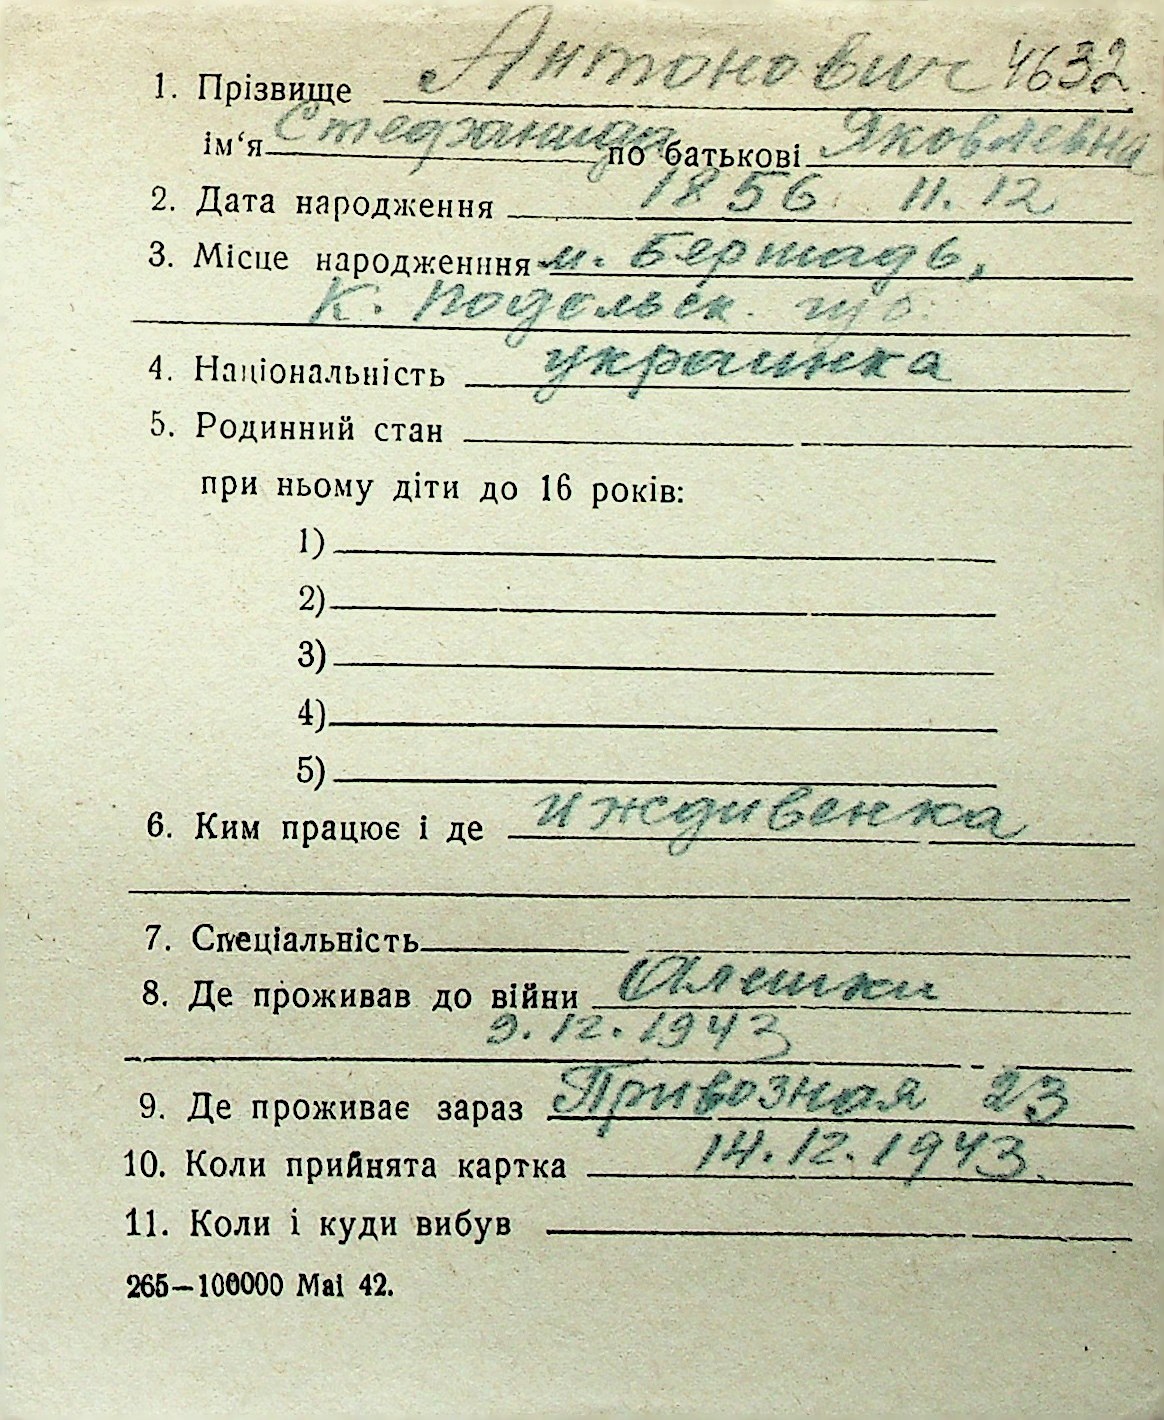 1. Прізвище Антонович 4632
ім'я Стефанида по батькові Яковлевна
2. Дата народження 1856 11.12
3. Місце народженння м. Бершадь,
К. Подольск. губ.
4. Національність украинка
5. Родинний стан
при ньому діти до 16 років:
1)
2)
3)
4)
5)
6. Ким працює і де иждивенка
7. Спеціальність
8. Де проживав до війни Алешки
9.12.1943
9. Де проживає зараз Привозная 23
10. Коли прийнята картка 14.12.1943.
11. Коли і куди вибув
265—100000 Mai 42.